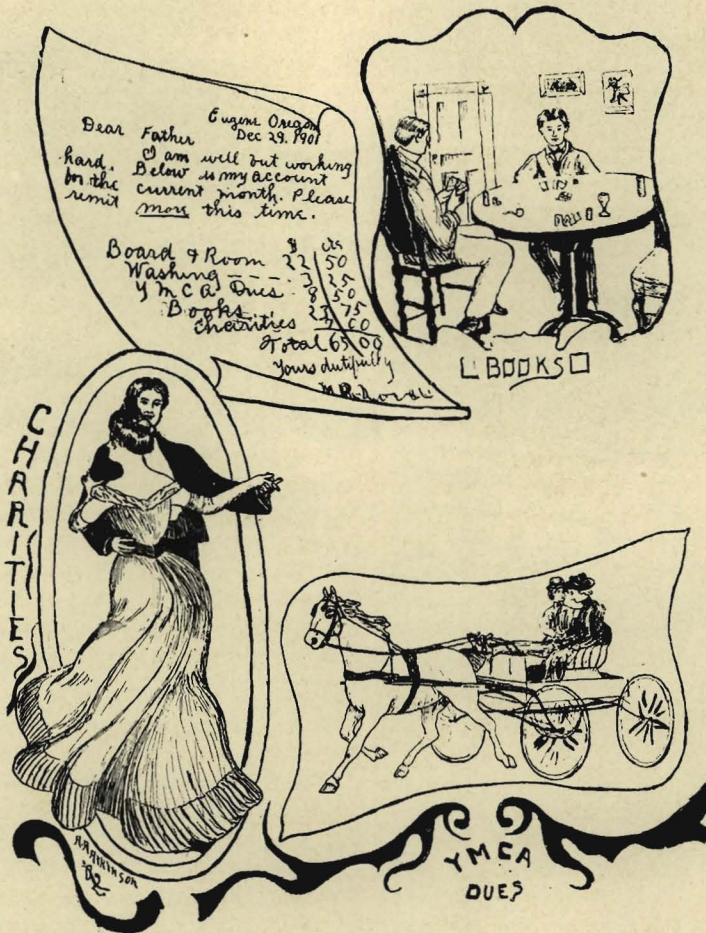 Eugene Oregon
Dec 29. 1901
Dear Father
I am well but working
hard. Below is my account
for the current month. Please
remit more this time.
$ cts
Board & Room 22 50
Washing ---- 3 25
Y M C A Dues 8 50
Books 23 75
Charities 7 00
Total 65 00
Yours dutifully
BOOKS
CHARITIES
YMCA
DUES